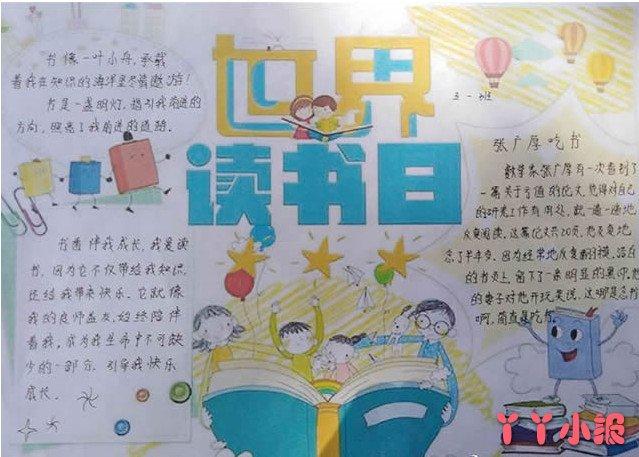 世界
读书日
书像一叶小舟,承载
着我在知识的海洋里尽情遨游!
书是一盏明灯,指引我前进的
方向,照亮了我前进的道路.
书香伴我成长,我是读
书,因为它不仅带给我知识,
还给我带来快乐.它就像
我的良师益友,始终陪伴
着我,成为我生命中不可缺
少的一部分,引导我快乐
成长.
三一班
张广厚吃书
数学家张广厚有一次看到了
一篇关于亏值的论文,觉得对自己
的研究工作有用处,就一遍一遍地
反复阅读.这篇论文共20页,他反复地
念了半年多.因为经常地反复翻摸,洁白
的书页上,留下了一条明显的黑印.他
的妻子对他开玩笑说,这哪是念书
啊,简直是吃书
丫丫小报